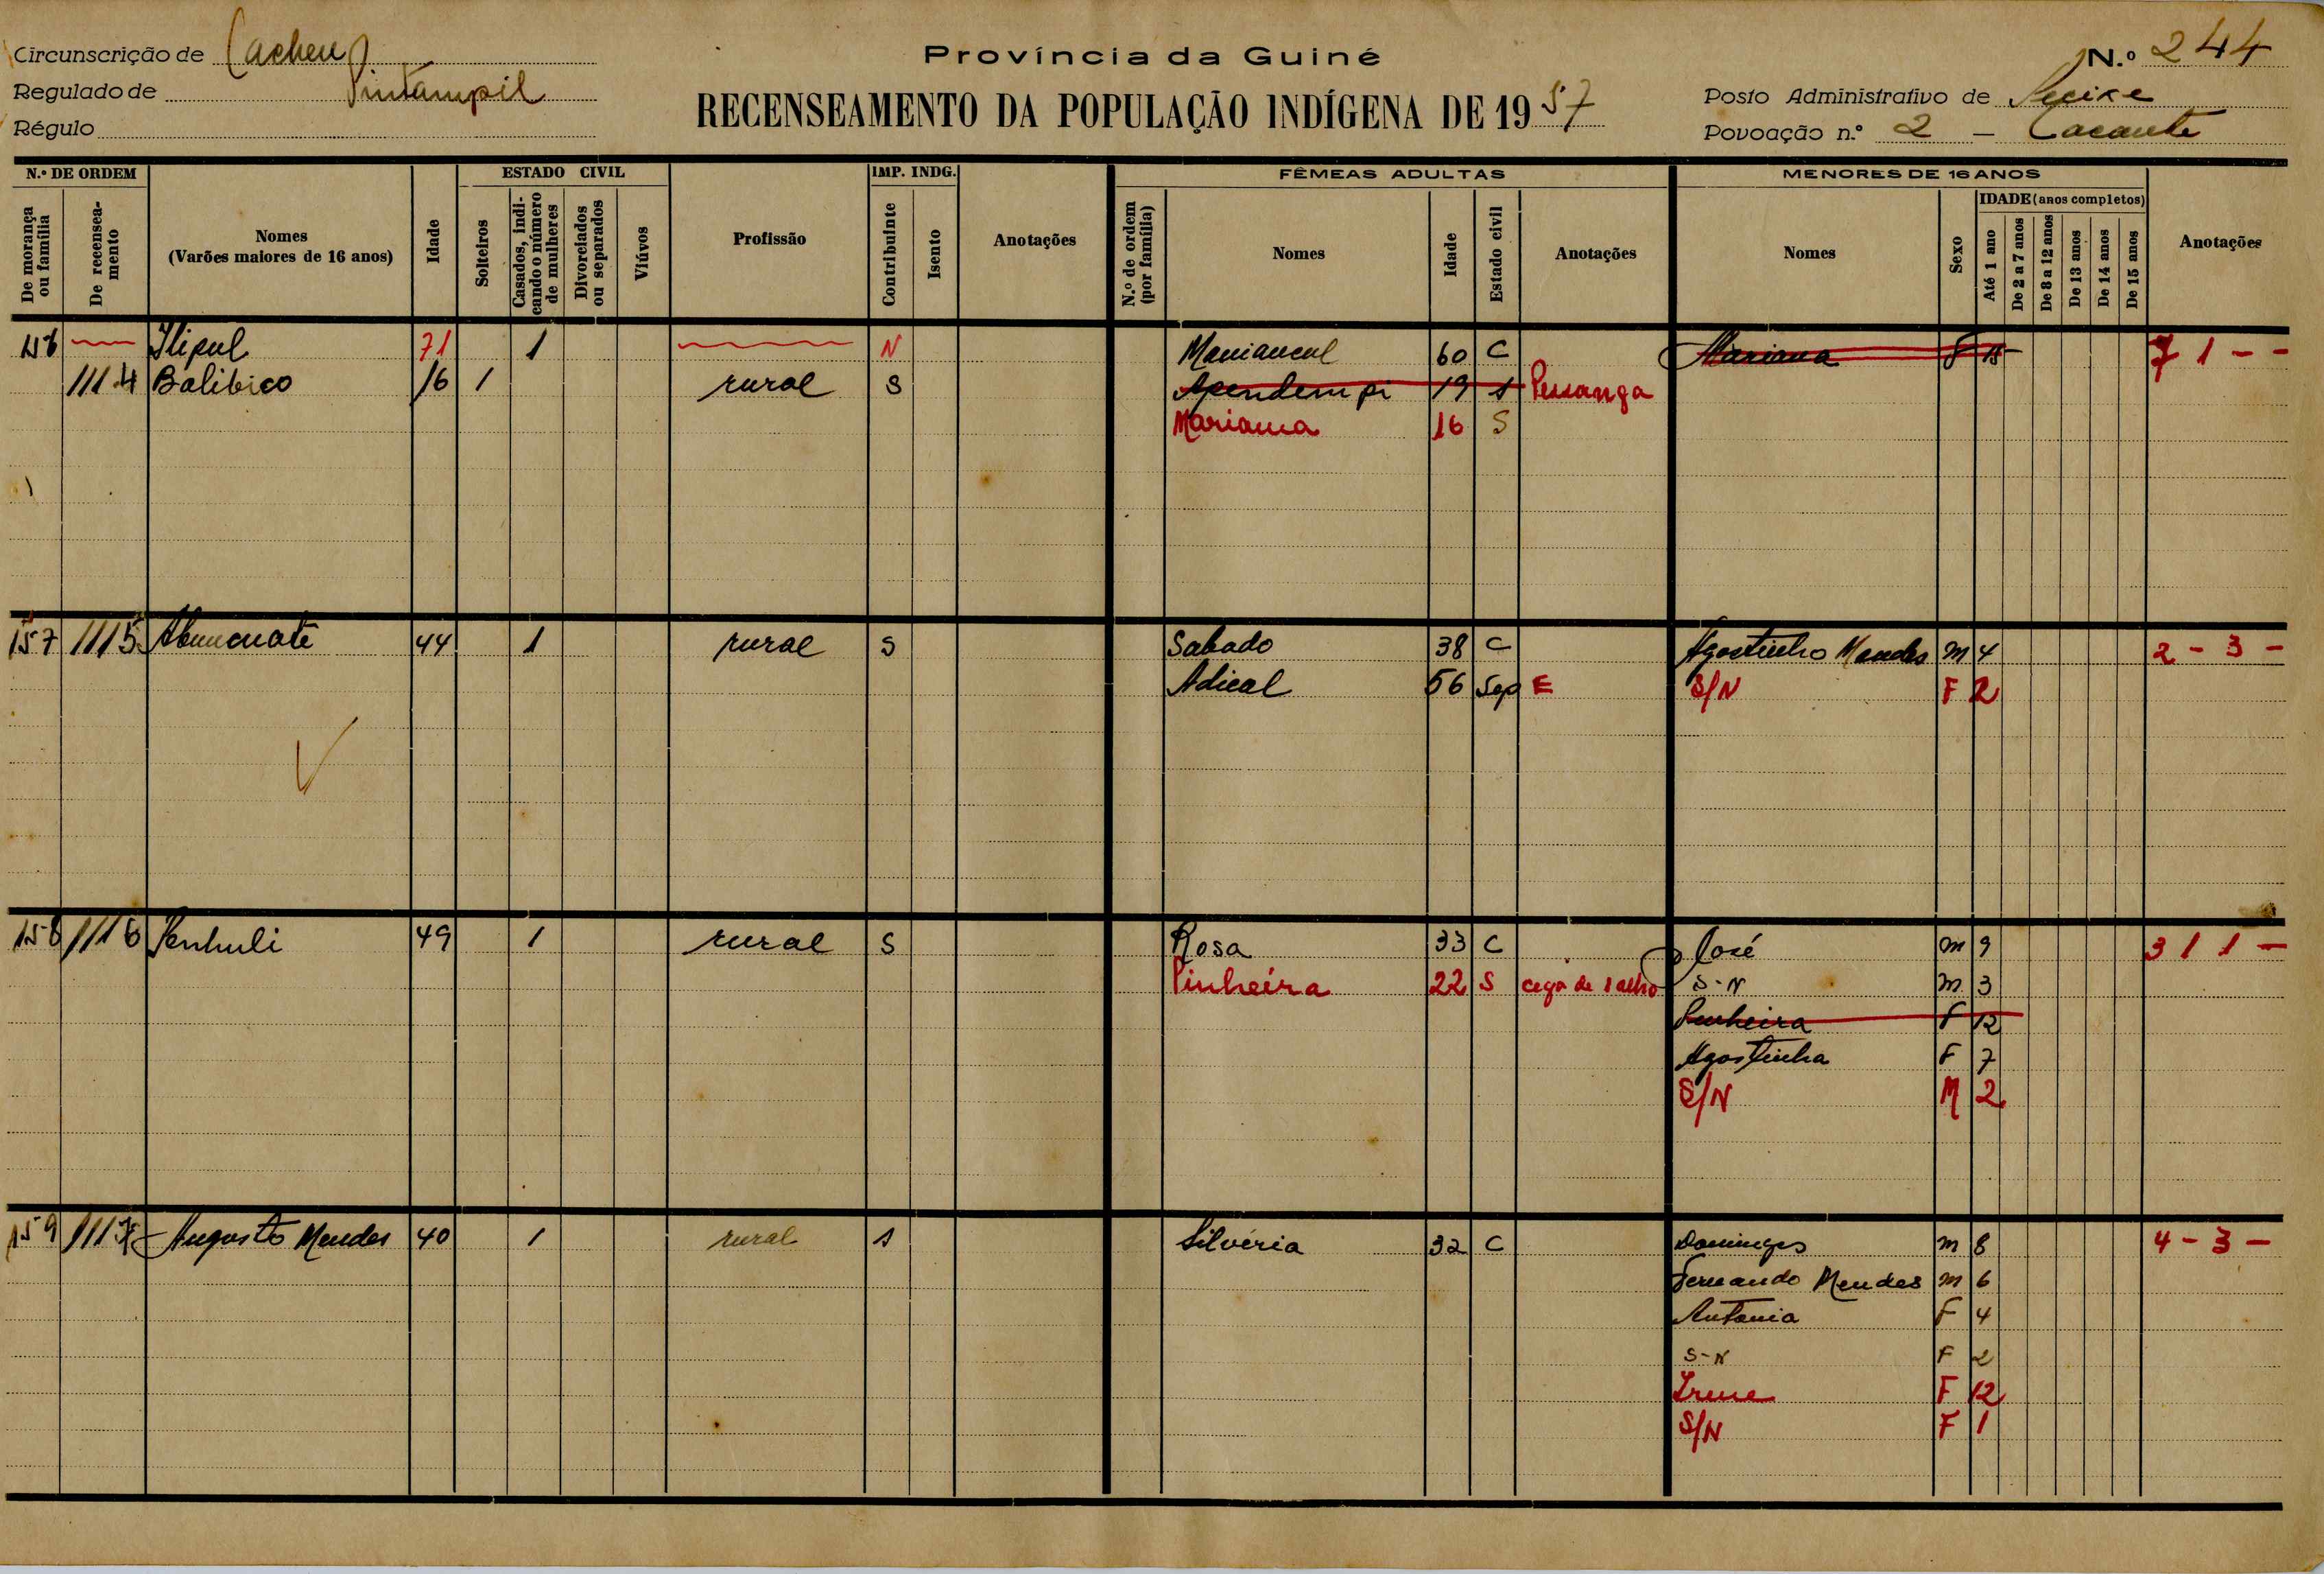 Circunscrição de Cacheu
Regulado de Pintampil
Régulo
Província da Guiné
RECENSEAMENTO DA POPULAÇÃO INDÍGENA DE 19 57
N.º 244
Posto Administrativo de
Povoação n.º 2 –
N.º DE ORDEM
De morança ou família
De recensea-mento
Nomes
(Varões maiores de 16 anos)
Idade
ESTADO CIVIL
Solteiros
Casados, indi-cando o número de mulheres
Divorciados ou separados
Viúvos
Profissão
IMP. INDG.
Contribuinte
Isento
Anotações
FÊMEAS ADULTAS
N.º de ordem (por família)
Nomes
Idade
Estado civil
Anotações
MENORES DE 16 ANOS
Nomes
Sexo
IDADE (anos completos)
Até 1 ano
De 2 a 7 anos
De 8 a 12 anos
De 13 anos
De 14 anos
De 15 anos
Anotações
71 1 N 60 C Mariana F 15 7 1 - -
1114 Balibico 16 1 rural S Apendempi 19 s
Mariana 16 S
157 1115 44 1 rural S Sabado 38 C Agostinho Mendes M 4 2 - 3 -
Adical 56 Sep E S/N F 2
158 1116 Penhuli 49 1 rural S Rosa 33 C José M 9 3 1 1 -
Pinheira 22 S cega de 1 olho S-N M 3
Pinheira F 12
Agostinha F 7
S/N M 2
159 1117 Augusto Mendes 40 1 rural s Silvéria 32 C Domingos M 8 4 - 3 -
Fernando Mendes M 6
Antonia F 4
S-N F 2
Irene F 12
S/N F 1